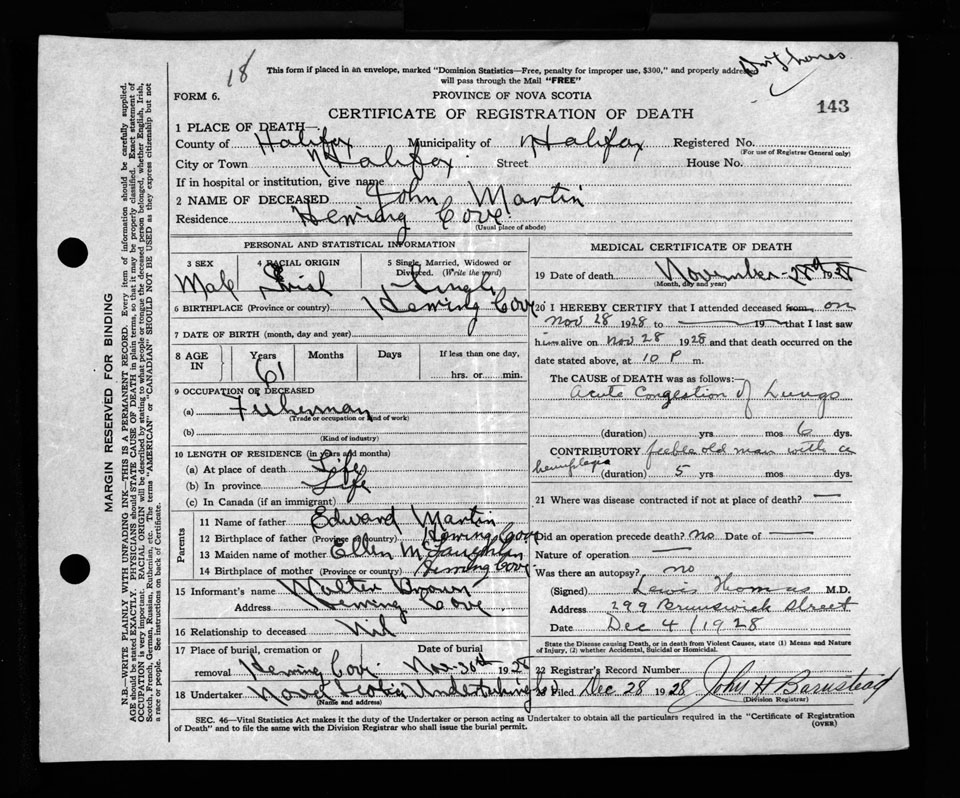 18
This form if placed in an envelope, marked "Dominion Statistics—Free, penalty for improper use, $300," and properly addressed
will pass through the Mail "FREE"
FORM 6.
PROVINCE OF NOVA SCOTIA
CERTIFICATE OF REGISTRATION OF DEATH
143
1 PLACE OF DEATH—
County of Halifax Municipality of Halifax Registered No.
(For use of Registrar General only)
City or Town Halifax Street House No.
If in hospital or institution, give name
2 NAME OF DECEASED John Martin
Residence Herring Cove
(Usual place of abode)
PERSONAL AND STATISTICAL INFORMATION
3 SEX 4 RACIAL ORIGIN 5 Single, Married, Widowed or
Divorced. (Write the word)
Male Irish Single
6 BIRTHPLACE (Province or country) Herring Cove
7 DATE OF BIRTH (month, day and year)
8 AGE IN Years Months Days If less than one day,
61 hrs. or min.
9 OCCUPATION OF DECEASED
(a) Fisherman
(Trade or occupation or kind of work)
(b)
(Kind of industry)
10 LENGTH OF RESIDENCE (in years and months)
(a) At place of death Life
(b) In province Life
(c) In Canada (if an immigrant)
Parents
11 Name of father Edward Martin
12 Birthplace of father (Province or country) Herring Cove
13 Maiden name of mother Ellen McLaughlan
14 Birthplace of mother (Province or country) Herring Cove
15 Informant's name Walter Brown
Address Herring Cove
16 Relationship to deceased Nil
17 Place of burial, cremation or Date of burial
removal Herring Cove Nov. 30th 1928
18 Undertaker Nova Scotia Undertaking
(Name and address)
MEDICAL CERTIFICATE OF DEATH
19 Date of death November 28th 1928
(Month, day and year)
20 I HEREBY CERTIFY that I attended deceased from, on
Nov 28 1928 to — 19 — that I last saw
him alive on Nov 28 1928 and that death occurred on the
date stated above, at 10 P m.
The CAUSE OF DEATH was as follows:—
Acute Congestion of Lungs
(duration) yrs mos 6 dys.
CONTRIBUTORY feeble old man with a
hemiplegia (duration) 5 yrs mos dys.
21 Where was disease contracted if not at place of death? —
Did an operation precede death? no Date of —
Nature of operation —
Was there an autopsy? no
(Signed) Lewis Thomas M.D.
Address 299 Brunswick Street
Date Dec 4/1928
State the Disease causing Death, or in death from Violent Causes, state (1) Means and Nature
of Injury, (2) whether Accidental, Suicidal or Homicidal.
22 Registrar's Record Number
Filed Dec 28 1928 John H Barnstead
(Division Registrar)
SEC. 46—Vital Statistics Act makes it the duty of the Undertaker or person acting as Undertaker to obtain all the particulars required in the "Certificate of Registration
of Death" and to file the same with the Division Registrar who shall issue the burial permit.
(OVER)
MARGIN RESERVED FOR BINDING
N.B.—WRITE PLAINLY WITH UNFADING INK—THIS IS A PERMANENT RECORD. Every item of information should be carefully supplied.
AGE should be stated EXACTLY. PHYSICIANS should STATE CAUSE OF DEATH in plain terms, so that it may be properly classified. Exact statement of
OCCUPATION is very important. RACIAL ORIGIN will be described by stating to what people or tongue the deceased person belonged, whether English, Irish,
Scotch, French, German, Russian, Ruthenian, etc. The terms "AMERICAN" or "CANADIAN" SHOULD NOT BE USED as they express citizenship but not
a race or people. See instructions on back of Certificate.